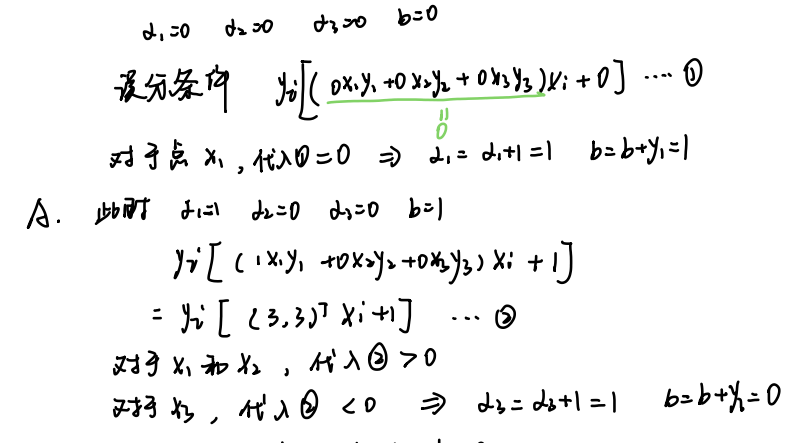 α₁=0 α₂=0 α₃=0 b=0
误分条件 yᵢ[(0x₁y₁+0x₂y₂+0x₃y₃)xᵢ+0] ····①
=0
对于点 x₁,代入①=0 ⇒ α₁=α₁+1=1 b=b+y₁=1
A. 此时 α₁=1 α₂=0 α₃=0 b=1
yᵢ[(1x₁y₁+0x₂y₂+0x₃y₃)xᵢ+1]
= yᵢ[(3,3)ᵀxᵢ+1] ···②
对于 x₁和x₂,代入②>0
对于 x₃,代入②<0 ⇒ α₃=α₃+1=1 b=b+yᵢ=0